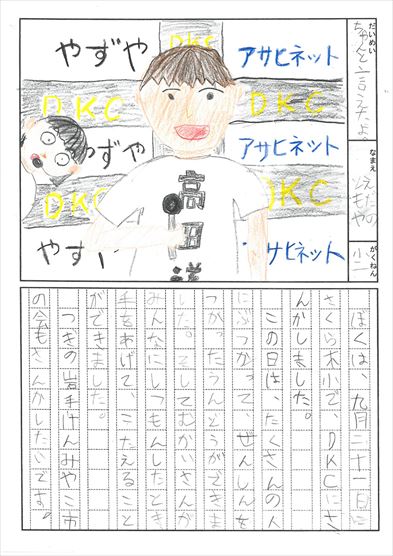 だいめい
ちゃんと言えたよ
なまえ
がくねん
小一
やずや DKC アサヒネット
DKC DKC
やずや アサヒネット
DKC DKC
やずや サヒネット
高田
ぼくは、九月二十一日に
さくら木小で、DKCにさ
んかしました。
この日は、たくさんの人
にぶつかって、ぜんしんを
つかったうんどうができま
した。そしてむかいさんが
みんなにしつもんしたとき
手をあげて、こたえること
ができました。
つぎの岩手けんみやこ市
の会もさんかしたいです。